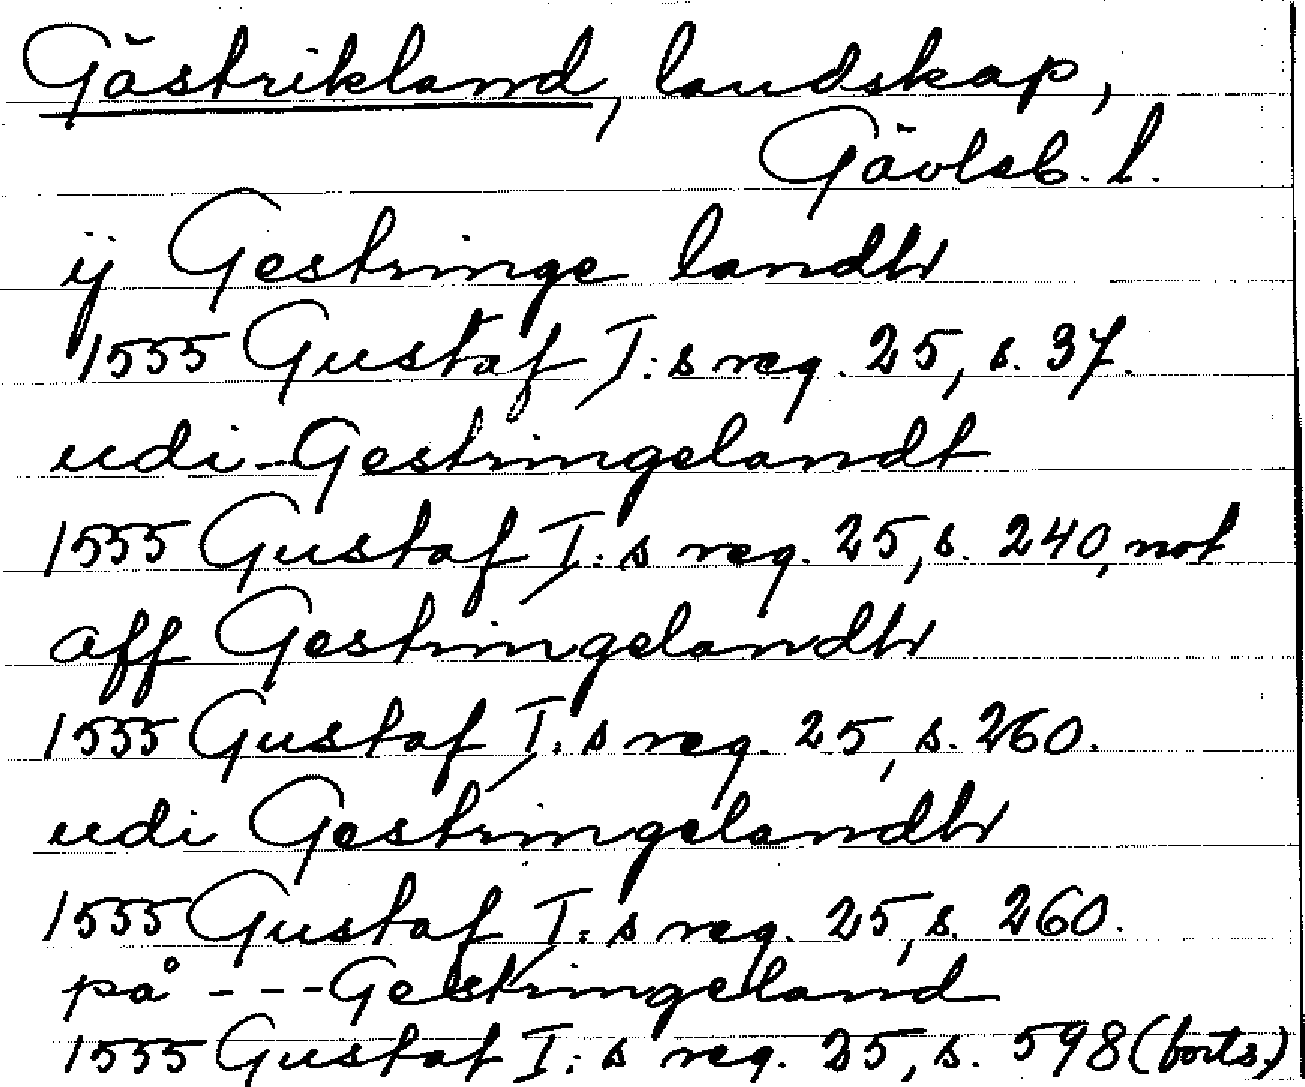 Gästrikland, landskap,
Gävleb. l.
ij Gestringe landtt
1555 Gustaf I:s reg. 25, s. 37.
udi - Gestringelandt
1555 Gustaf I:s reg. 25, s. 240, not
aff Gestringelandtt
1555 Gustaf I:s reg. 25, s. 260.
udi Gestringelandtt
1555 Gustaf I:s reg. 25, s. 260.
på - - - Gestringeland
1555 Gustaf I:s reg. 25, s. 598 (forts.)